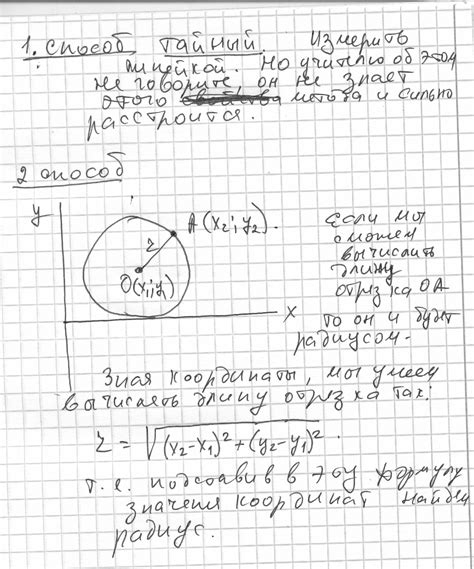 1. способ тайный. Измерить
линейкой. Но учителю об этом
не говорите, он не знает
этого свойства метода и сильно
расстроится.
2 способ
y
A(x2; y2).
r
O(x1; y1)
x
если мы
сможем
вычислить
длину
отрезка OA
то он и будет
радиусом.
Зная координаты, мы умеем
вычислять длину отрезка так:
r = √(x2-x1)² + (y2-y1)² .
т.е. подставив в эту формулу
значения координат найдем
радиус.